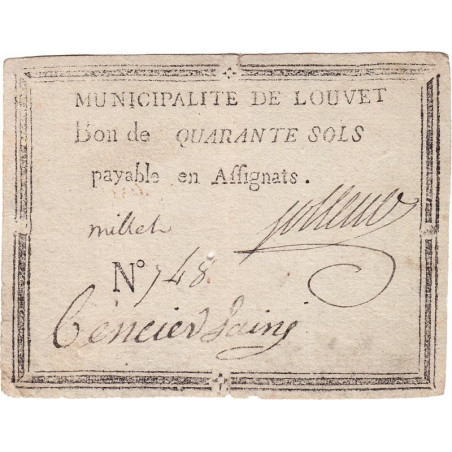 MUNICIPALITE DE LOUVET
Bon de QUARANTE SOLS
payable en Assignats.
millet
N° 748.